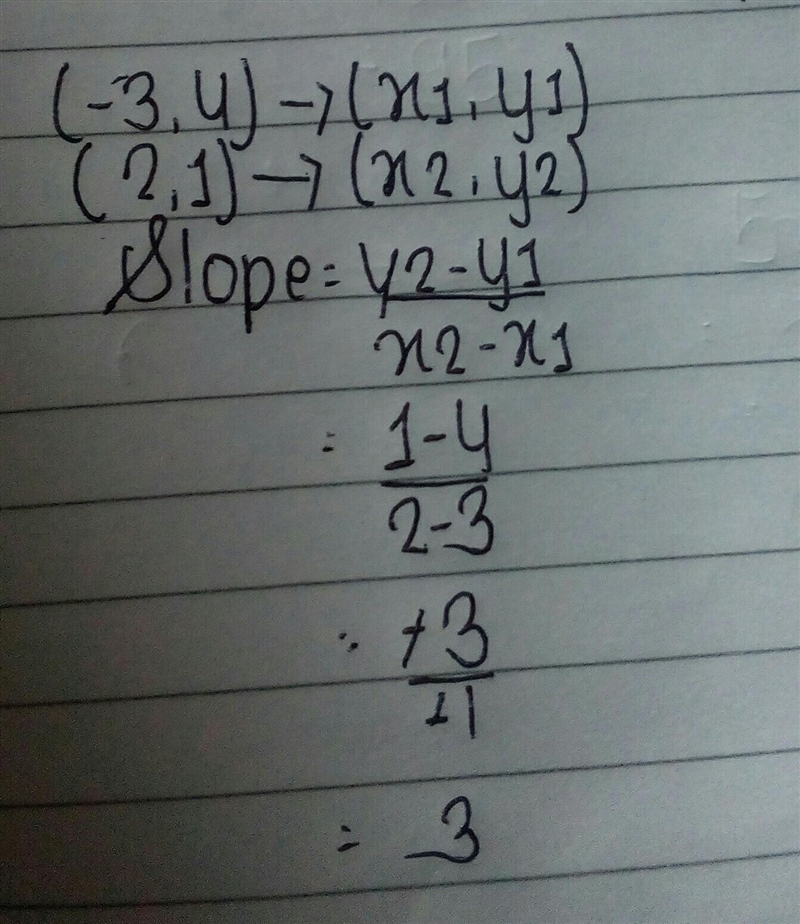 (-3,4) → (x1,y1)
(2,1) → (x2,y2)
Slope = y2-y1
x2-x1
= 1-4
2-3
= +3
+1
= 3